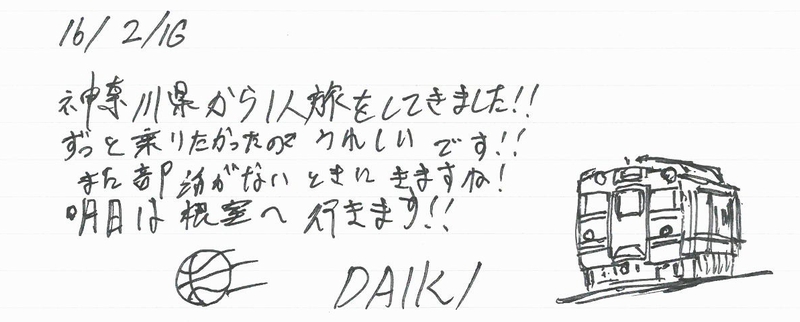 16/2/16
神奈川県から1人旅をしてきました!!
ずっと乗りたかったので うれしい です!!
また部活がない ときに きますね!
明日は根室へ 行きます!!
DAIKI